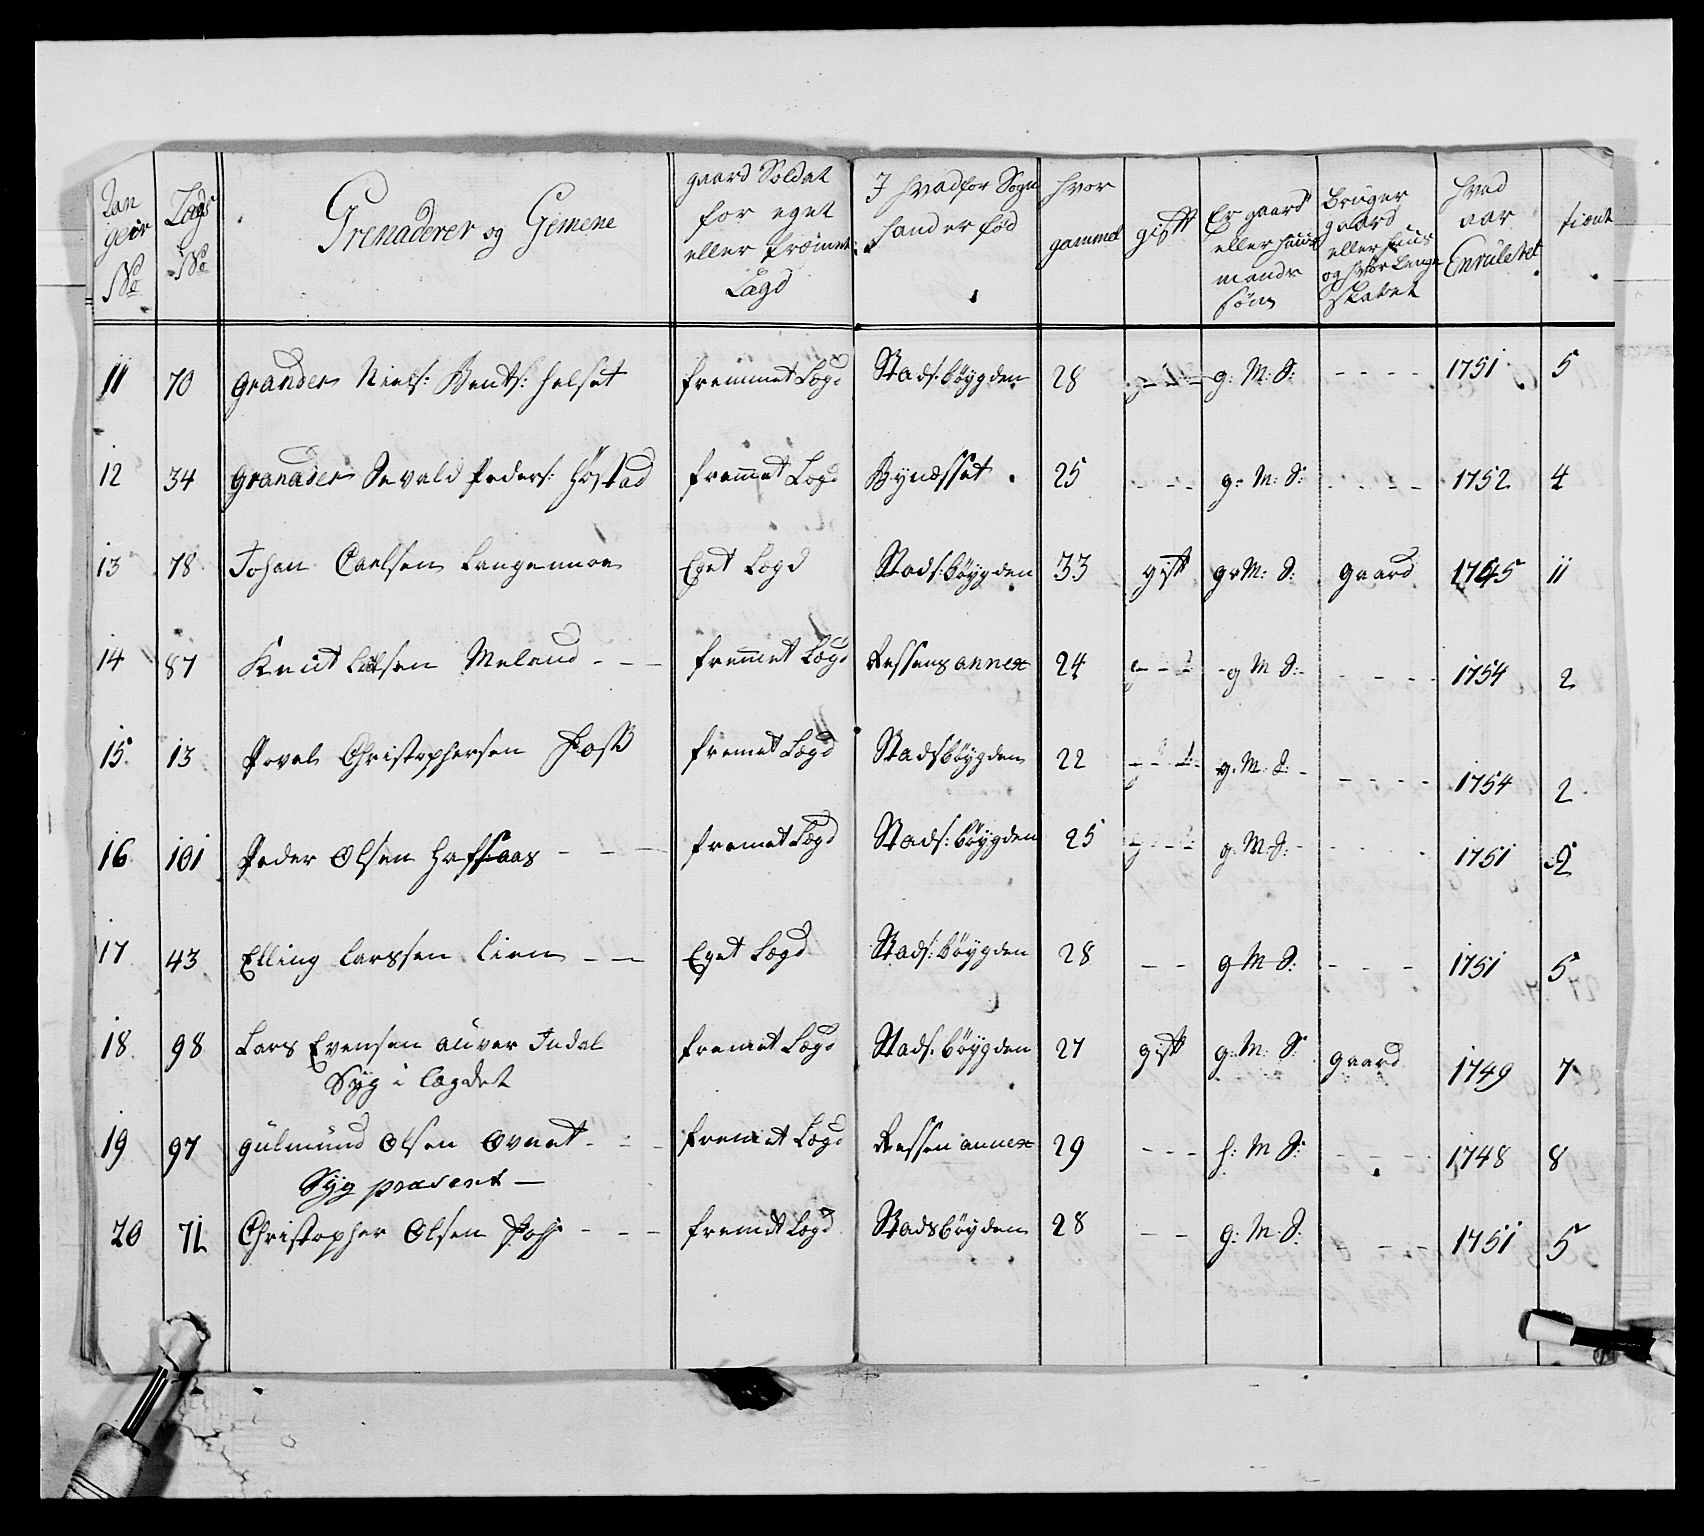 No
Lægds No
Grenaderer og Gemene
gaard Soldat for eget eller fræmet Lægd
I hvadfor Sogn hand er fød
hvor gammel
gift
Er gaard eller huus mands søn
bruger gaard eller huus og hvor Længe
hvad aar Enruleret
tient
11 70 Grander Niels: Bents: Helset fremmet Lægd Stads:bøygden 28 g: M: S: - - - - 1751 5
12 34 Granader Sevald Peders: Høstad fremet Lægd Bynæsset 25 - - - g: M: S: - - - - 1752 4
13 78 Johan Carlsen Langemoe Eget Lægd Stads:bøygden 33 gift g: M: S: gaard 1745 11
14 87 Knut Olsen Meland - - - fremmet Lægd Ressens annex 24 g M S: - - - - 1754 2
15 13 Povel Christophersen fremet Lægd Stadsbøygden 22 g. M. S: - - - - 1754 2
16 101 Peder Olsen Hafsaas - - - fremet Lægd Stads:bøygden 25 g: M: S: - - - - 1751
17 43 Elling Larssen Lien - - Eget Lægd Stads:bøygden 28 - - g M S: - - - 1751 5
18 98 Lars Evensen auver Indal fremet Lægd Stads:bøygden 27 gift g: M: S: gaard 1749 7
Syg i lægdet
19 97 Gulmund Olsen Ovnet - - - fremet Lægd Ressen annex 29 - - - h: M S: - - - - 1748 8
Syg præsent -
20 71 Christopher Olsen - - - fremet Lægd Stadsbøyden 28 - - g: M. S: - - - 1751 5